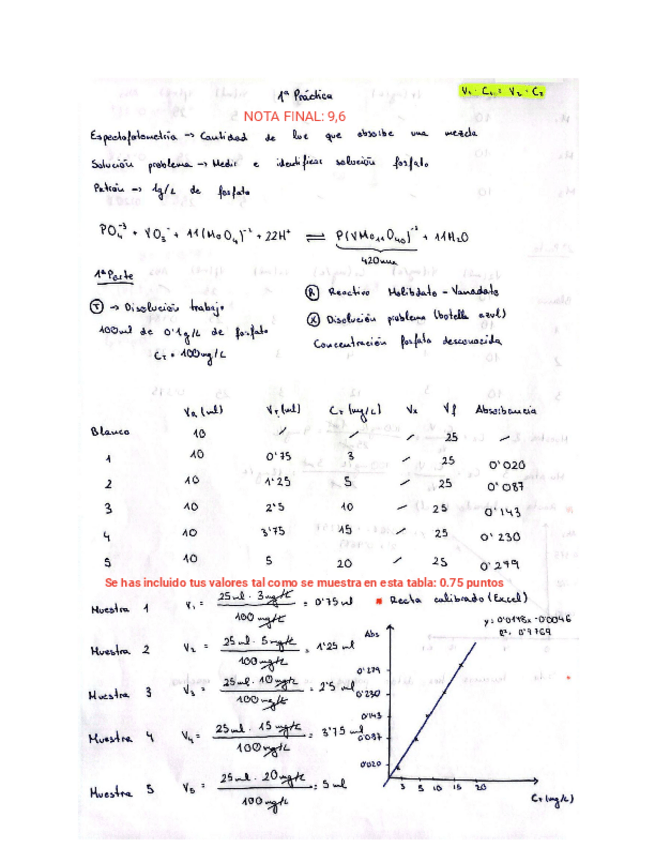 1ª Práctica
V₁ · C₁ = V₂ · C₂
NOTA FINAL: 9,6
Espectofotometría → Cantidad de luz que absorbe una mezcla
Solución problema → Medir e identificar solución fosfato
Patrón → 1g/L de fosfato
PO₄⁻³ + VO₃⁻ + 11(MoO₄)⁻² + 22H⁺ ⇌ P(VMo₁₁O₄₀)⁻³ + 11H₂O
420nm
1ª Parte
Ⓣ → Disolución trabajo
100ml de 0'1g/L de fosfato
Cт = 100mg/L
Ⓡ Reactivo Molibdato - Vanadato
Ⓧ Disolución problema (botella azul)
Concentración fosfato desconocida
VR (ml) VT (ml) CT (mg/L) Vx Vf Absorbancia
Blanco 10 / / / 25 /
1 10 0'75 3 / 25 0'020
2 10 1'25 5 / 25 0'087
3 10 2'5 10 / 25 0'143
4 10 3'75 15 / 25 0'230
5 10 5 20 / 25 0'279
Se has incluido tus valores tal como se muestra en esta tabla: 0.75 puntos
Muestra 1 V₁ = 25ml · 3mg/L / 100 mg/L = 0'75 ml
Muestra 2 V₂ = 25ml · 5mg/L / 100mg/L = 1'25 ml
Muestra 3 V₃ = 25ml · 10mg/L / 100mg/L = 2'5 ml
Muestra 4 V₄ = 25ml · 15mg/L / 100mg/L = 3'75 ml
Muestra 5 V₅ = 25ml · 20mg/L / 100mg/L = 5ml
* Recta calibrado (Excel)
y = 0'0148x - 0'0046
R² = 0'9769
Abs
0'279
0'230
0'143
0'087
0'020
3 5 10 15 20
CT (mg/L)